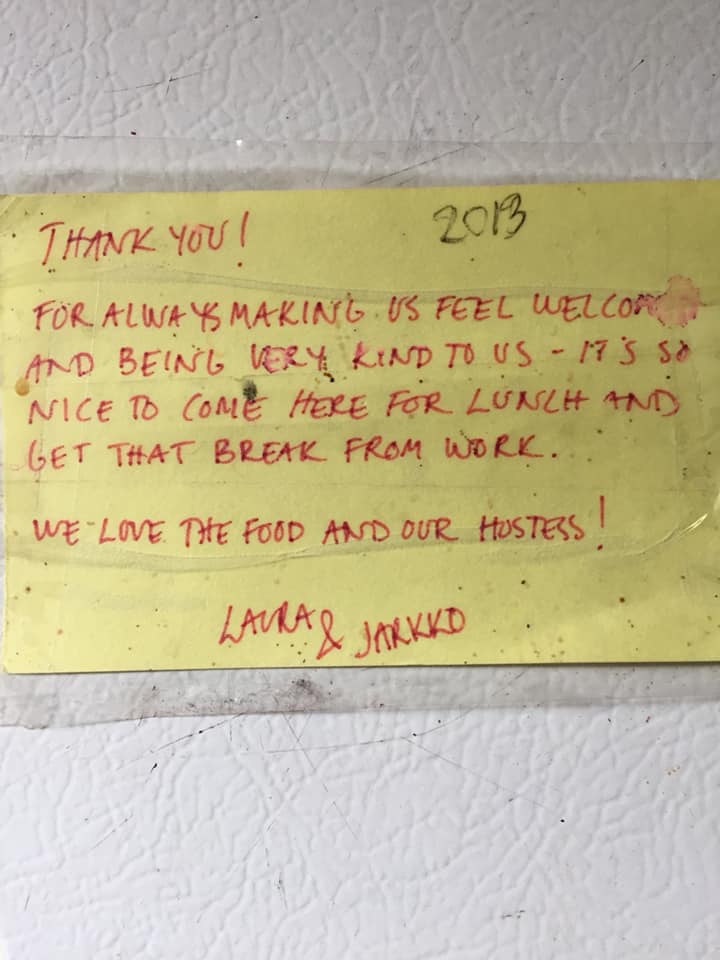 THANK YOU! 2013
FOR ALWAYS MAKING US FEEL WELCOME
AND BEING VERY KIND TO US - IT'S SO
NICE TO COME HERE FOR LUNCH AND
GET THAT BREAK FROM WORK.
WE LOVE THE FOOD AND OUR HOSTESS!
LAURA & JARKKO